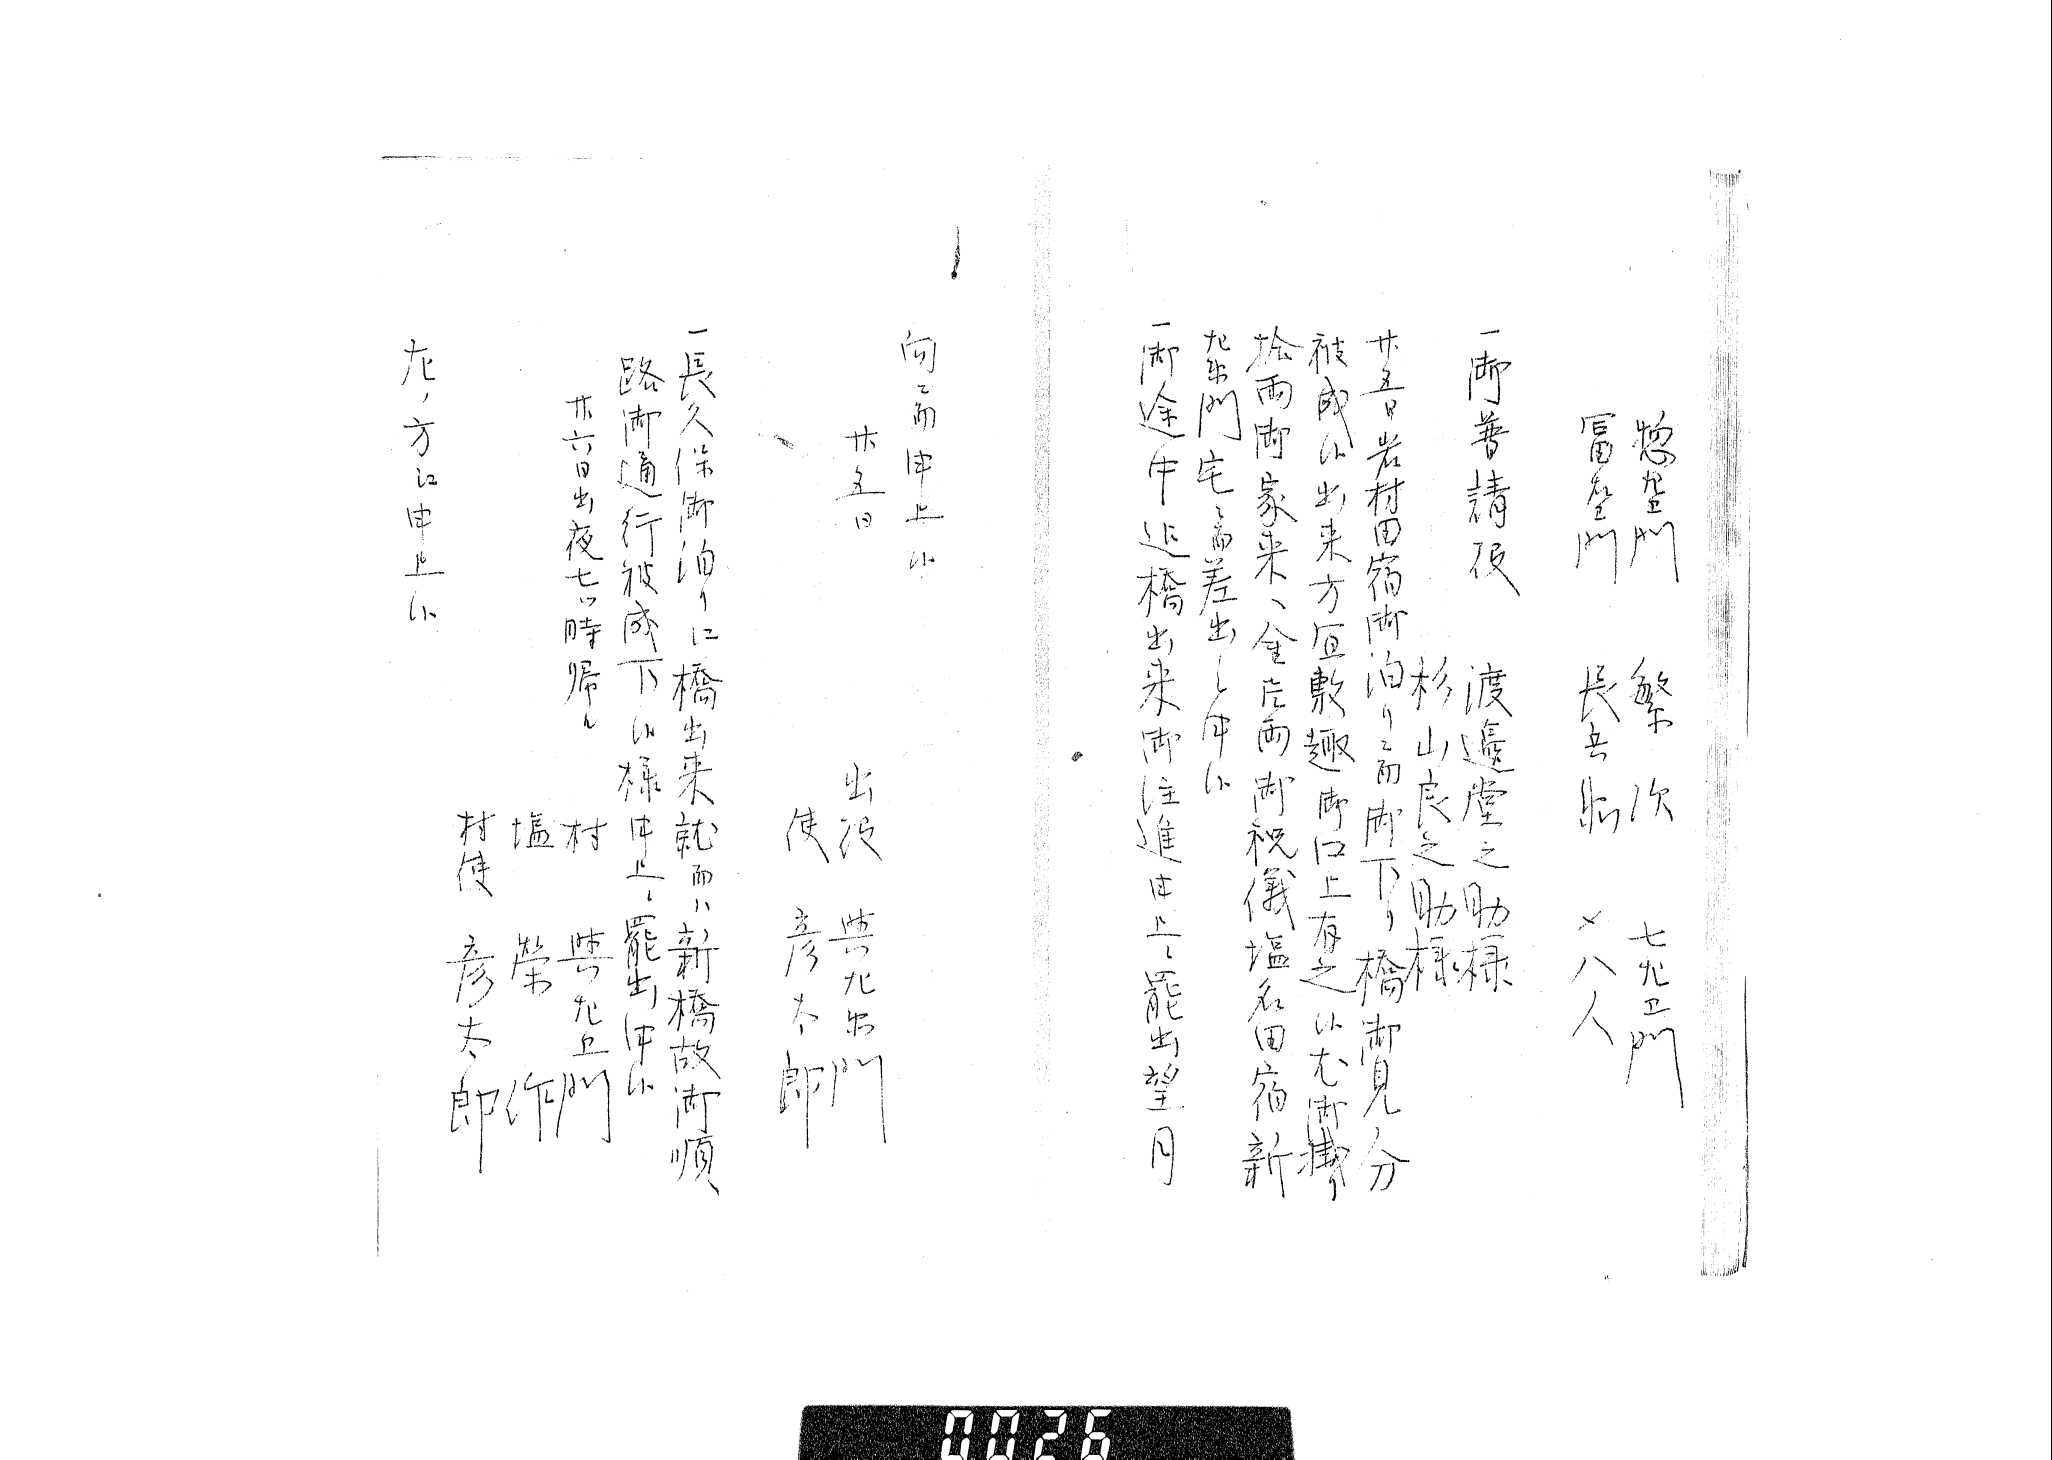 惣左衛門　繁次　七九卫門
冨左衛門　長兵衛　〆八人
一御普請役　渡邉堂之助様
杉山良之助様
廿五日岩村田宿御泊り而御下り橋御見分
被成候出来方宜敷趣御口上有之候尤御掛り
拾両御家来ヘ金片両御祝儀塩名田宿新
左衛門宅ニ而差出し申候
一御途中迄橋出来御注進申上ニ罷出望月
向ニ而申上候
廿五日　出役　與左衛門
使　彦太郎
一長久保御泊りに橋出来就而ハ新橋故御順
路御通行被成下候様申上ニ罷出申候
廿六日出夜七ツ時帰ル
村　與左衛門
塩　榮作
村使　彦太郎
左ノ方江申上候
0026